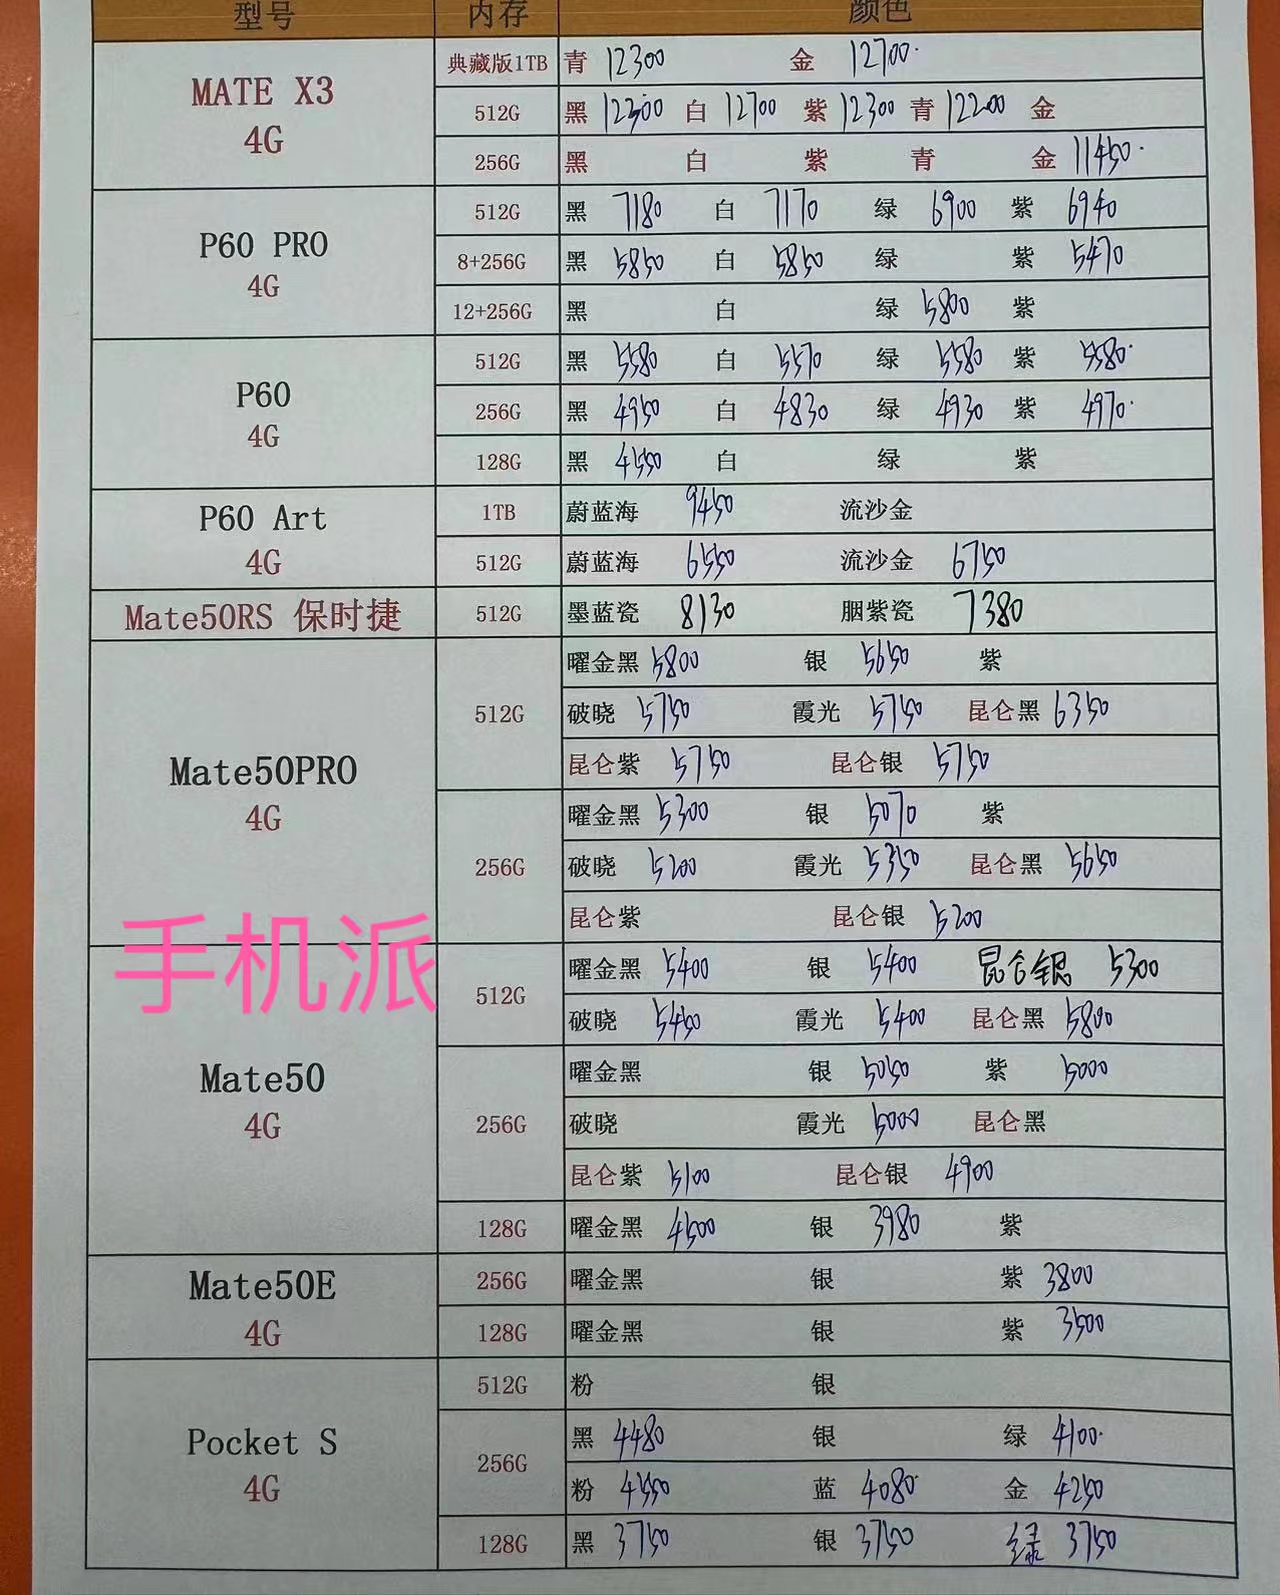 型号 内存 颜色
MATE X3 4G
典藏版1TB 青 12300 金 12700
512G 黑 12300 白 12700 紫 12300 青 12200 金
256G 黑 白 紫 青 金 11450
P60 PRO 4G
512G 黑 7180 白 7170 绿 6900 紫 6940
8+256G 黑 5850 白 5850 绿 紫 5470
12+256G 黑 白 绿 5800 紫
P60 4G
512G 黑 5580 白 5570 绿 5580 紫 5580
256G 黑 4950 白 4830 绿 4930 紫 4970
128G 黑 4550 白 绿 紫
P60 Art 4G
1TB 蔚蓝海 9450 流沙金
512G 蔚蓝海 6550 流沙金 6750
Mate50RS 保时捷 512G 墨蓝瓷 8130 胭紫瓷 7380
Mate50PRO 4G
512G 曜金黑 5800 银 5650 紫
破晓 5750 霞光 5750 昆仑黑 6350
昆仑紫 5750 昆仑银 5750
256G 曜金黑 5300 银 5070 紫
破晓 5200 霞光 5350 昆仑黑 5650
昆仑紫 昆仑银 5200
手机派
Mate50 4G
512G 曜金黑 5400 银 5400 昆仑银 5300
破晓 5450 霞光 5400 昆仑黑 5800
256G 曜金黑 银 5050 紫 5000
破晓 霞光 5000 昆仑黑
昆仑紫 5100 昆仑银 4900
128G 曜金黑 4500 银 3980 紫
Mate50E 4G
256G 曜金黑 银 紫 3800
128G 曜金黑 银 紫 3500
Pocket S 4G
512G 粉 银
256G 黑 4480 银 绿 4100
粉 4550 蓝 4080 金 4250
128G 黑 3750 银 3750 绿 3750